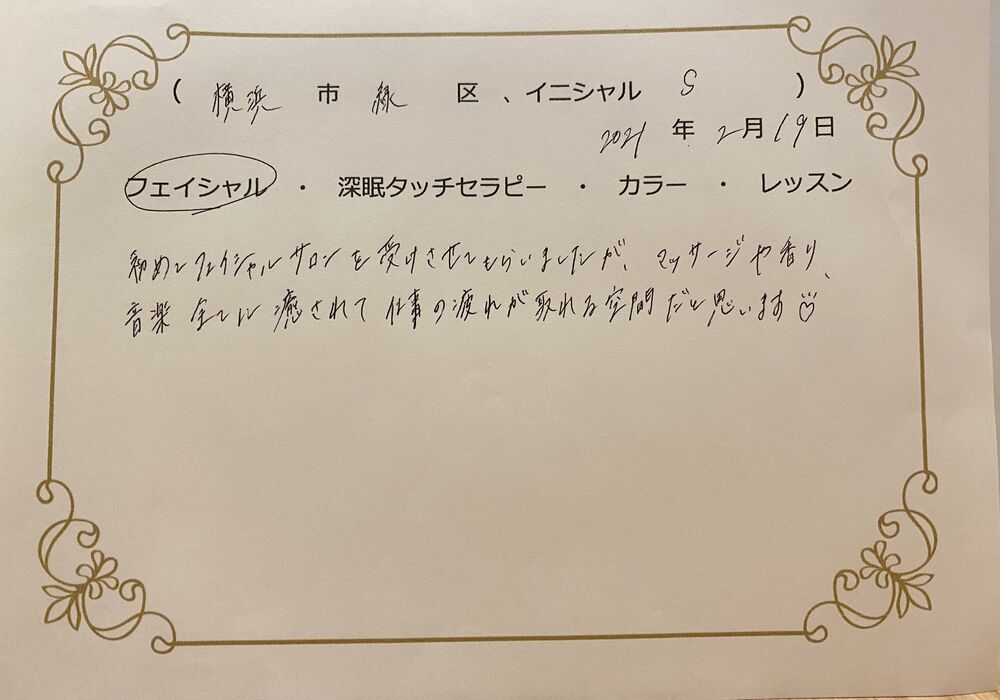 ( 横浜 市 緑 区 、イニシャル S )
2021 年 2月19日
フェイシャル ・ 深眠タッチセラピー ・ カラー ・ レッスン
初めてフェイシャルサロンを受けさせてもらいましたが、マッサージや香り、
音楽 全てに癒されて仕事の疲れが取れる空間だと思います